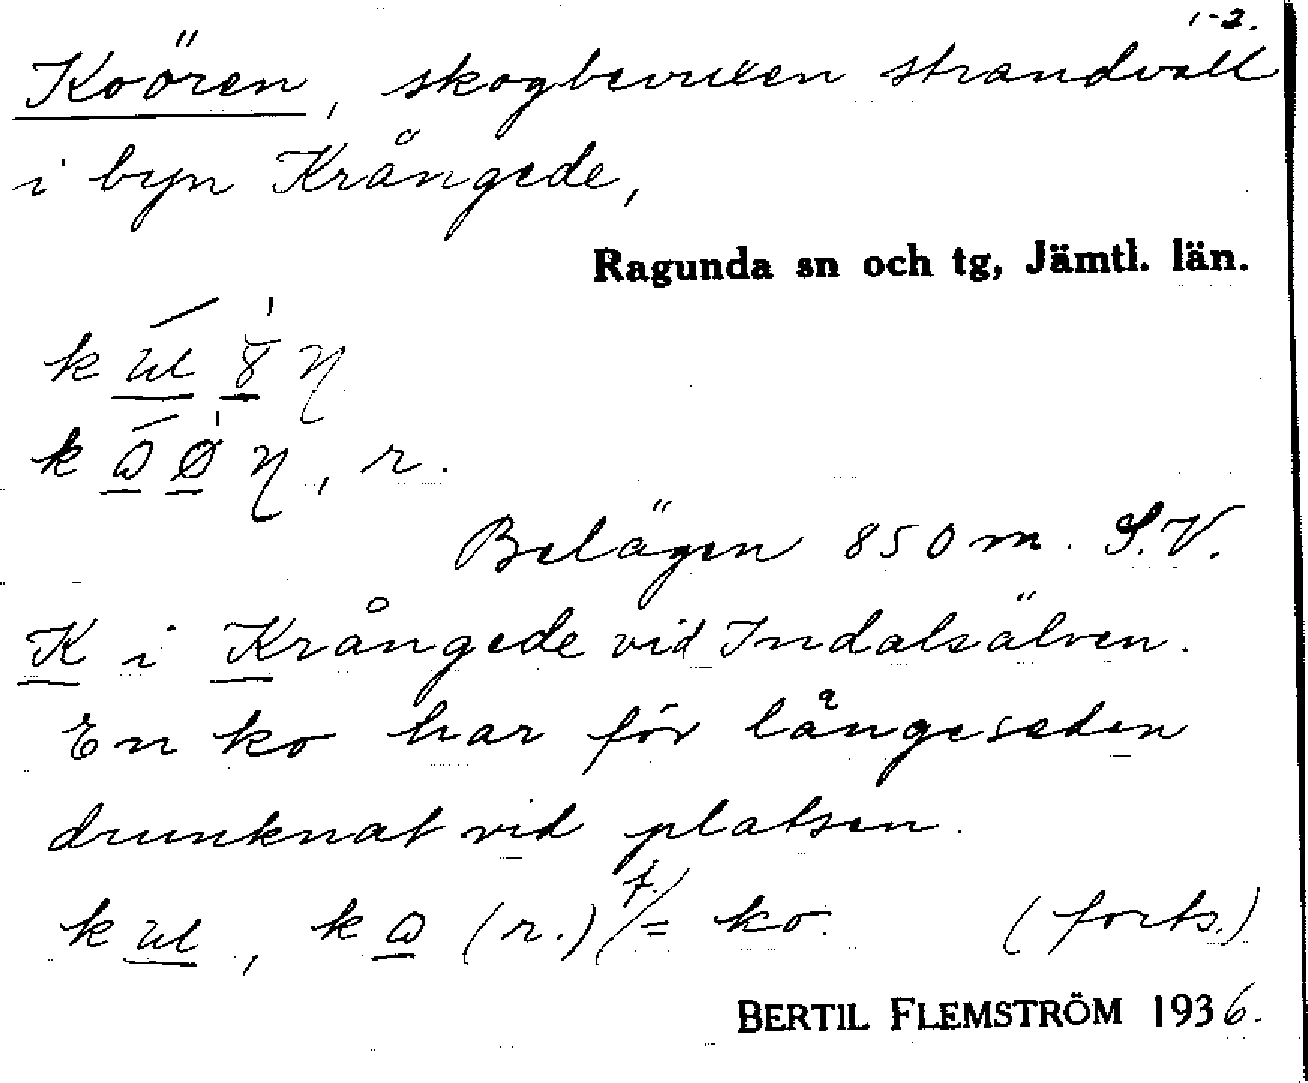 1-2.
Koören, skogbevuxen strandvall
i byn Krångede,
Ragunda sn och tg, Jämtl. län.
k
k , r.
Belägen 850 m. S.V.
K i Krångede vid Indalsälven.
En ko har för långesedan
drunknat vid platsen.
k , k (r.) f. = ko (forts.)
BERTIL FLEMSTRÖM 1936.